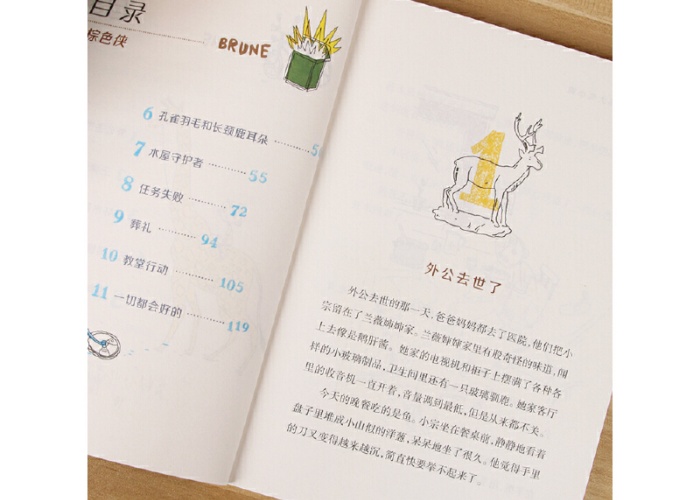 目录
棕色侠
BRUNE
6 孔雀羽毛和长颈鹿耳朵
7 木屋守护者 ………… 55
8 任务失败 ………… 72
9 葬礼 ………… 94
10 教堂行动 ………… 105
11 一切都会好的 ………… 119
1
外公去世了
外公去世的那一天，爸爸妈妈都去了医院，他们把小
宗留在了兰薇婶婶家。兰薇婶婶家里有股奇怪的味道，闻
上去像是鹅肝酱。她家的电视机和柜子上摆满了各种各
样的小玻璃制品，卫生间里还有一只玻璃驯鹿。她家客厅
里的收音机一直开着，音量调到最低，但是从来都不关。
今天的晚餐吃的是鱼。小宗坐在餐桌前，静静地看着
盘子里堆成小山似的洋葱，呆呆地坐了很久。他觉得手里
的刀叉变得越来越沉，简直快要举不起来了。